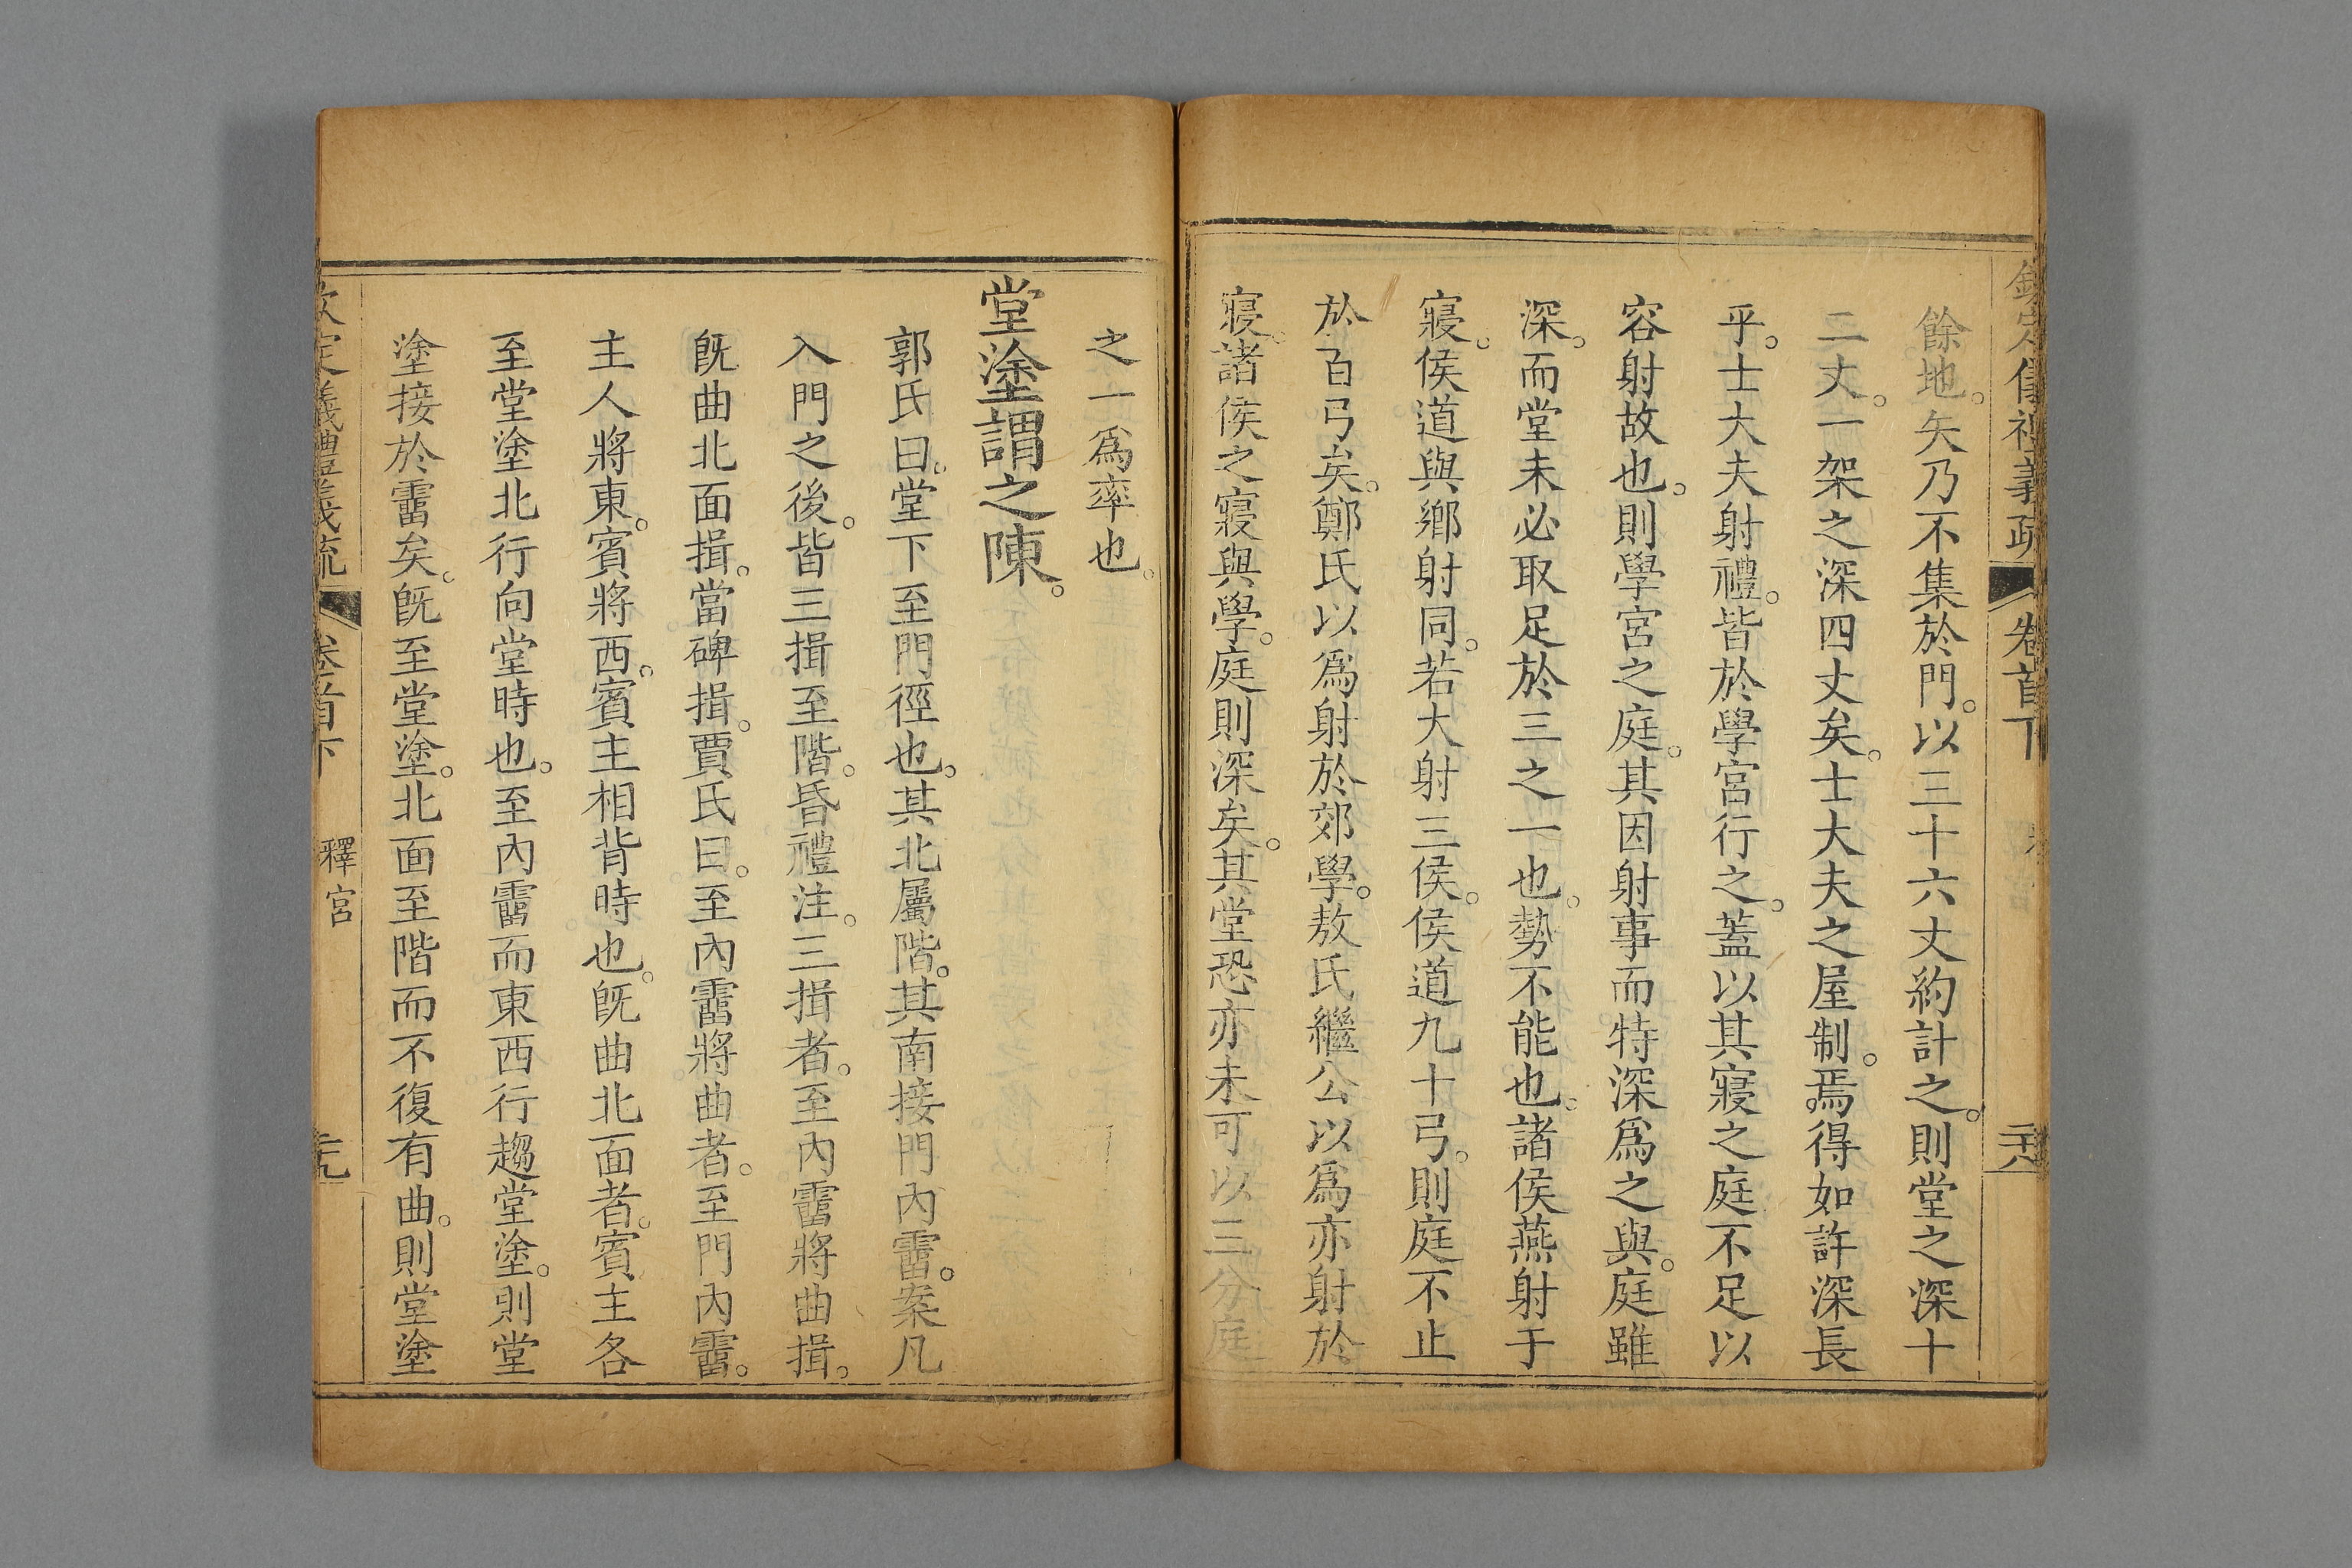 欽定儀禮義疏 卷首下
餘地。矢乃不集於門。以三十六丈約計之。則堂之深十
二丈。一架之深四丈矣。士大夫之屋制。焉得如許深長
乎。士大夫射禮。皆於學宮行之。蓋以其寢之庭不足以
容射故也。則學宮之庭。其因射事而特深爲之與。庭雖
深。而堂未必取足於三之一也。勢不能也。諸侯燕射于
寢。侯道與鄉射同。若大射三侯。侯道九十弓。則庭不止
於百弓矣。鄭氏以爲射於郊學。敖氏繼公以爲亦射於
寢。諸侯之寢與學。庭則深矣。其堂恐亦未可以三分庭
之一爲率也。
堂塗謂之陳。
郭氏曰。堂下至門徑也。其北屬階。其南接門內霤。案凡
入門之後。皆三揖至階。昏禮注。三揖者。至內霤將曲揖。
旣曲北面揖。當碑揖。賈氏曰。至內霤將曲者。至門內霤。
主人將東。賓將西。賓主相背時也。旣曲北面者。賓主各
至堂塗北行向堂時也。至內霤而東西行趨堂塗。則堂
塗接於霤矣。旣至堂塗。北面至階而不復有曲。則堂塗
欽定儀禮義疏 卷首下 釋宮 元